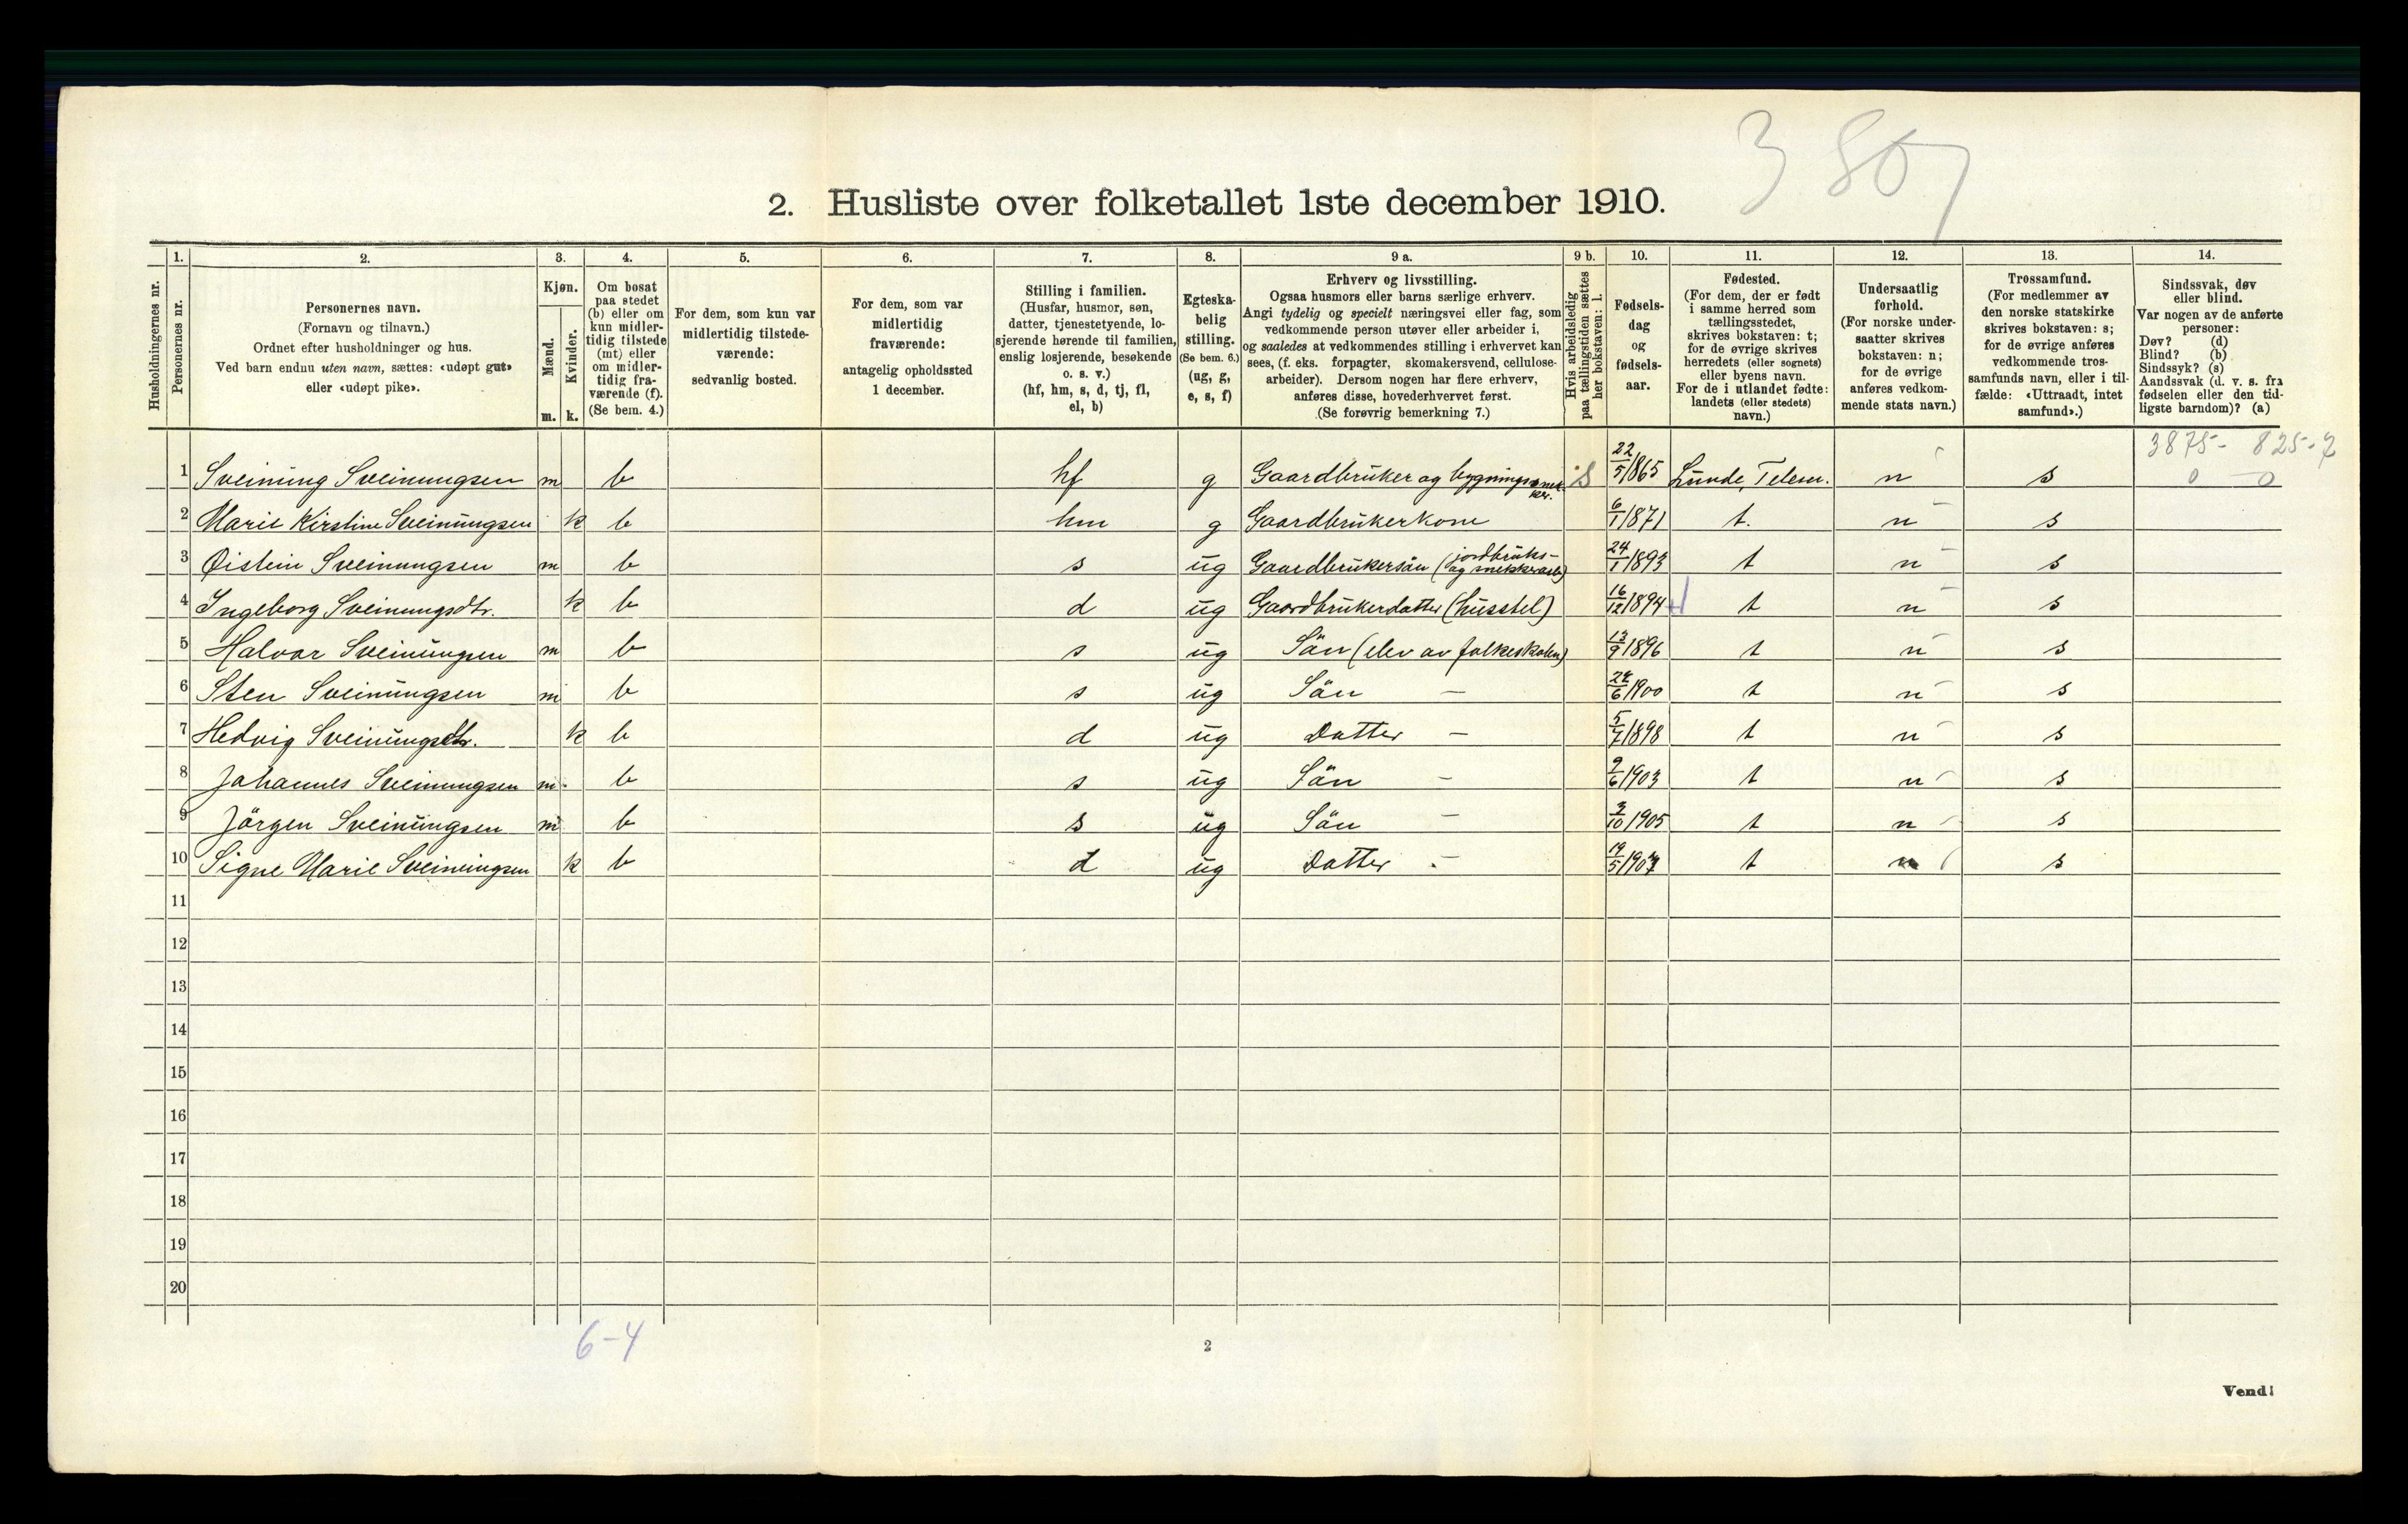 3 807
2. Husliste over folketallet 1ste december 1910.
Husholdningernes nr.
1. Personernes nr.
2. Personernes navn. (Fornavn og tilnavn.) Ordnet efter husholdninger og hus. Ved barn endnu uten navn, sættes: «udøpt gut» eller «udøpt pike».
3. Kjøn. Mænd. m. Kvinder. k.
4. Om bosat paa stedet (b) eller om kun midlertidig tilstede (mt) eller om midlertidig fraværende (f). (Se bem. 4.)
5. For dem, som kun var midlertidig tilstedeværende: sedvanlig bosted.
6. For dem, som var midlertidig fraværende: antagelig opholdssted 1 december.
7. Stilling i familien. (Husfar, husmor, søn, datter, tjenestetyende, losjerende hørende til familien, enslig losjerende, besøkende o. s. v.) (hf, hm, s, d, tj, fl, el, b)
8. Egteskabelig stilling. (Se bem. 6.) (ug, g, e, s, f)
9 a. Erhverv og livsstilling. Ogsaa husmors eller barns særlige erhverv. Angi tydelig og specielt næringsvei eller fag, som vedkommende person utøver eller arbeider i, og saaledes at vedkommendes stilling i erhvervet kan sees, (f. eks. forpagter, skomakersvend, cellulosearbeider). Dersom nogen har flere erhverv, anføres disse, hovederhvervet først. (Se forøvrig bemerkning 7.)
9 b. Hvis arbeidsledig paa tællingstiden sættes her bokstaven: l.
10. Fødselsdag og fødselsaar.
11. Fødested. (For dem, der er født i samme herred som tællingsstedet, skrives bokstaven: t; for de øvrige skrives herredets (eller sognets) eller byens navn. For de i utlandet fødte: landets (eller stedets) navn.)
12. Undersaatlig forhold. (For norske undersaatter skrives bokstaven: n; for de øvrige anføres vedkommende stats navn.)
13. Trossamfund. (For medlemmer av den norske statskirke skrives bokstaven: s; for de øvrige anføres vedkommende trossamfunds navn, eller i tilfælde: «Uttraadt, intet samfund».)
14. Sindssvak, døv eller blind. Var nogen av de anførte personer: Døv? (d) Blind? (b) Sindssyk? (s) Aandssvak (d. v. s. fra fødselen eller den tidligste barndom)? (a)
3875- 825-2
1 Sveinung Sveinungsen m b hf g Gaardbruker og bygningssnekker. 22/5 1865 Lunde, Telem. n s 0 - 0
2 Marie Kirstine Sveinungsen k b hm g Gaardbrukerkone 6/1 1871 t. n s
3 Øistein Sveinungsen m b s ug Gaardbrukersön (jordbruks- og snekkerarb) 24/1 1893 t n s
4 Ingeborg Sveinungsdtr. k b d ug Gaardbrukerdatter (husstel) 16/12 1894 t n s
5 Halvor Sveinungsen m b s ug Sön (elev av folkeskolen) 13/9 1896 t n s
6 Sten Sveinungsen m b s ug Sön — 24/6 1900 t n s
7 Hedvig Sveinungsdtr. k b d ug Datter — 5/7 1898 t n s
8 Johannes Sveinungsen m. b s ug Sön — 9/6 1903 t n s
9 Jörgen Sveinungsen m b s ug Sön — 3/10 1905 t n s
10 Signe Marie Sveinungsen k b d ug Datter — 19/5 1907 t n s
11
12
13
14
15
16
17
18
19
20
6-4
2
Vend!